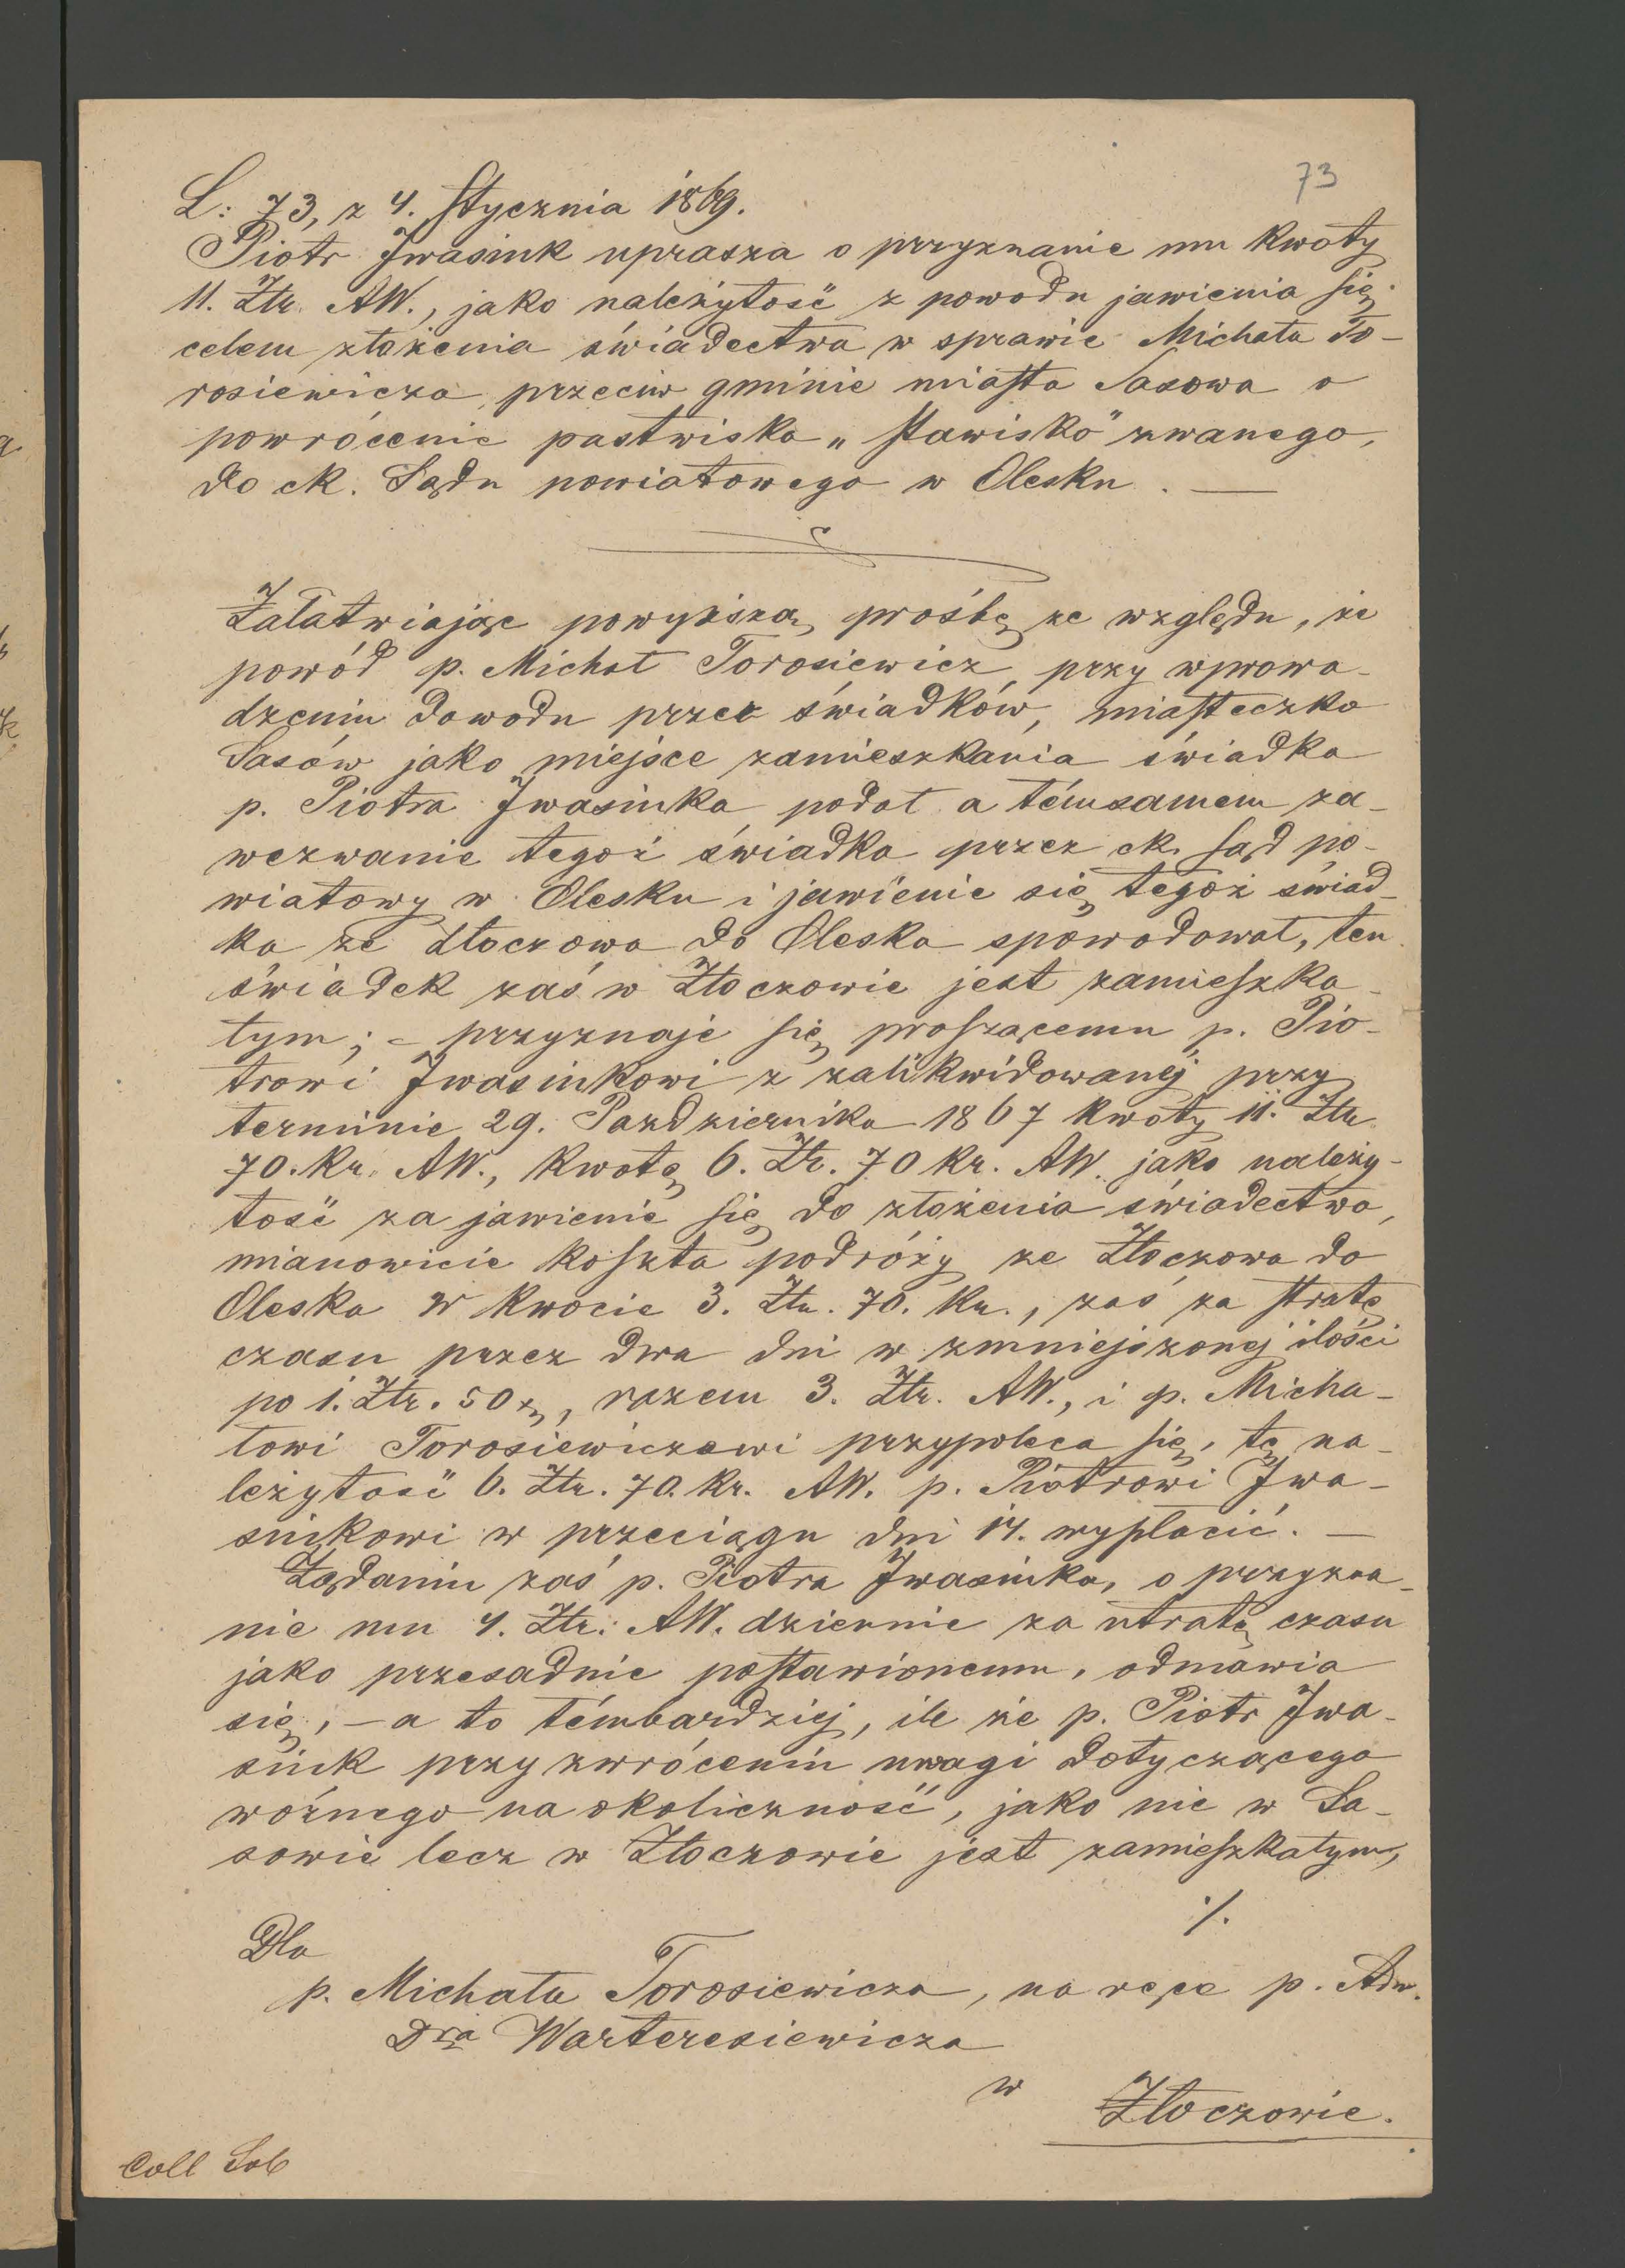 73
L: 73, z 4. Stycznia 1869.
Piotr Iwasiuk uprasza o przyznanie mu kwoty
11. Ztr. AW., jako należytość z powodu jawienia się
celem złożenia świadectwa w sprawie Michała To-
rosiewicza przeciw gminie miasta Sasowa o
powrócenie pastwiska „Stawisko" zwanego,
do ck. Sądu powiatowego w Olesku. —
Załatwiając powyższą prośbę ze względu, że
powód p. Michał Torosiewicz przy wprowa-
dzeniu dowodu przez świadków, miasteczko
Sasów jako miejsce zamieszkania świadka
p. Piotra Iwasiuka podał a témsamem za-
wezwanie tegoż świadka przez ck. Sąd po-
wiatowy w Olesku i jawienie się tegoż świad-
ka ze Złoczowa do Oleska spowodował, ten
świadek zaś w Złoczowie jest zamieszka-
łym; – przyznaje się proszącemu p. Pio-
trowi Iwasiukowi z zalikwidowanéj przy
terminie 29. Pazdziernika 1867 kwoty 11. Ztr.
70. kr. AW., kwotę 6. Zr. 70 kr. AW. jako należy-
tość za jawienie się do złożenia świadectwa,
mianowicie koszta podróży ze Złoczowa do
Oleska w kwocie 3. Ztr. 70. kr., zaś za stratę
czasu przez dwa dni w zmniejszonej ilości
po 1. Ztr. 50 x, razem 3. Ztr. AW., i p. Micha-
łowi Torosiewiczowi przypoleca się, tę na-
leżytość 6. Ztr. 70. kr. AW. p. Piotrowi Iwa-
siukowi w przeciągu dni 14. wypłacić. —
Żądaniu zaś p. Piotra Iwasiuka, o przyzna-
nie mu 4. Ztr. AW. dziennie za utratę czasu
jako przesadnie postawionemu, odmawia
się, – a to témbardziéj, ile że p. Piotr Iwa-
siuk przy zwróceniu uwagi dotyczącego
woźnego na okoliczność, jako nie w Sa-
sowie lecz w Złoczowie jest zamieszkałym,
./.
Dla
p. Michała Torosiewicza, na ręce p. Adw.
Dra Warteresiewicza
w
Złoczowie.
Coll Sob